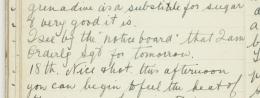 grenadine is a substitute for sugar
& very good it is.
I see by the "notice board" that I am
Orderly Sgt for tomorrow.
18th. Nice shot this afternoon
you can begin to feel the heat of